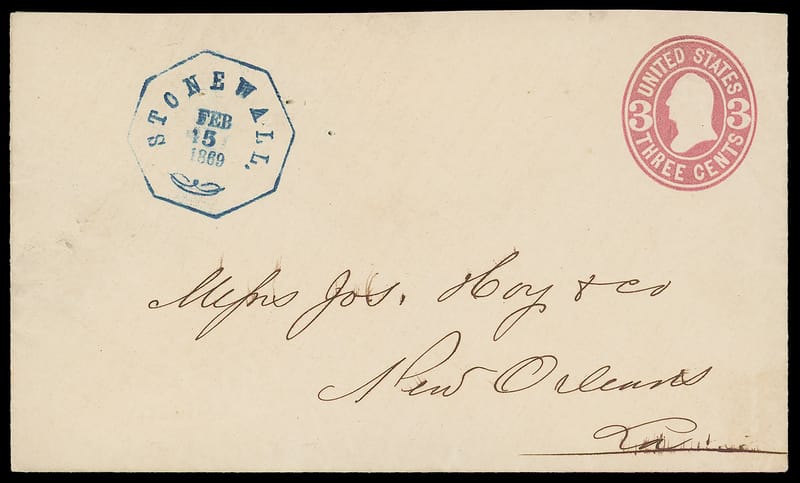 STONEWALL.
FEB
15
1869
UNITED STATES
3 3
THREE CENTS
Messrs Jos. Hoy & co
New Orleans
La